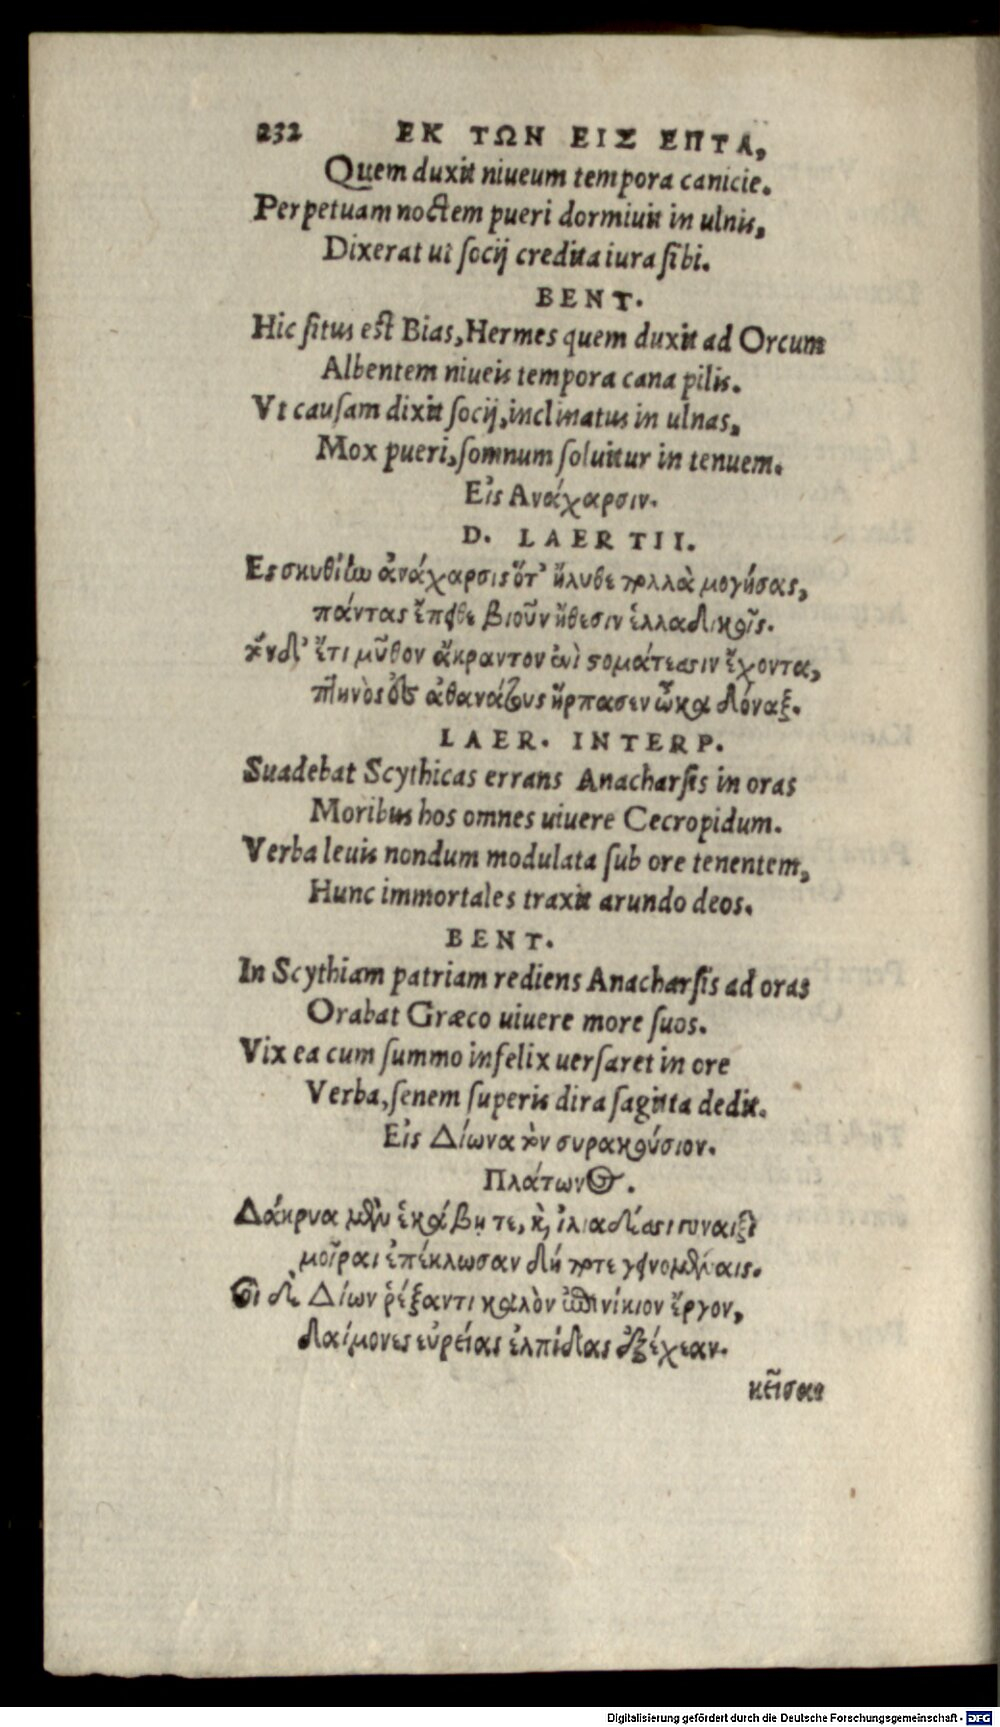 232 ΕΚ ΤΩΝ ΕΙΣ ΕΠΤΑ,
Quem duxit niueum tempora canicie.
Perpetuam noctem pueri dormiuit in ulnis,
Dixerat ut socij credita iura sibi.
BENT.
Hic situs est Bias, Hermes quem duxit ad Orcum
Albentem niueis tempora cana pilis.
Vt causam dixit socij, inclinatus in ulnas,
Mox pueri, somnum soluitur in tenuem.
Εἰς Ανάχαρσιν.
D. LAERTII.
Ες σκυθίην ἀνάχαρσις ὅτ' ἤλυθε πολλὰ μογήσας,
πάντας ἔπειθε βιοῦν ἤθεσιν ἑλλαδικοῖς.
τὸν δ' ἔτι μῦθον ἄκραντον ἐνὶ στομάτεσσιν ἔχοντα,
πτηνὸς ἐς ἀθανάτους ἥρπασεν ὦκα δόναξ.
LAER. INTERP.
Suadebat Scythicas errans Anacharsis in oras
Moribus hos omnes uiuere Cecropidum.
Verba leuis nondum modulata sub ore tenentem,
Hunc immortales traxit arundo deos.
BENT.
In Scythiam patriam rediens Anacharsis ad oras
Orabat Græco uiuere more suos.
Vix ea cum summo infelix uersaret in ore
Verba, senem superis dira sagitta dedit.
Εἰς Δίωνα τὸν συρακούσιον.
Πλάτωνος.
Δάκρυα μὲν ἑκάβῃ τε, καὶ ἰλιάδεσσι γυναιξὶ
μοῖραι ἐπέκλωσαν δή ποτε γεινομέναις.
Σοὶ δὲ Δίων ῥέξαντι καλὸν ἐπινίκιον ἔργον,
δαίμονες εὐρείας ἐλπίδας ἐξέχεαν.
κεῖσαι
Digitalisierung gefördert durch die Deutsche Forschungsgemeinschaft - DFG